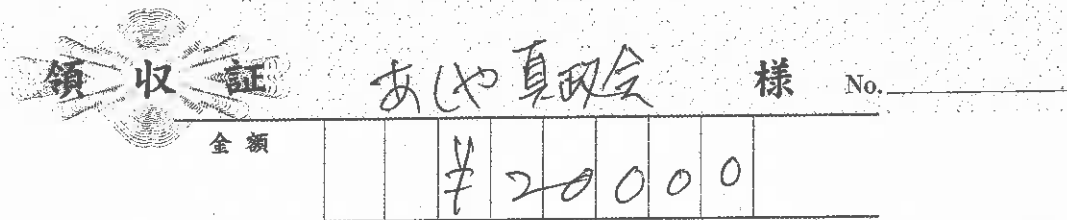 領収証 あしや真政会 様 No.
金額 ¥20000